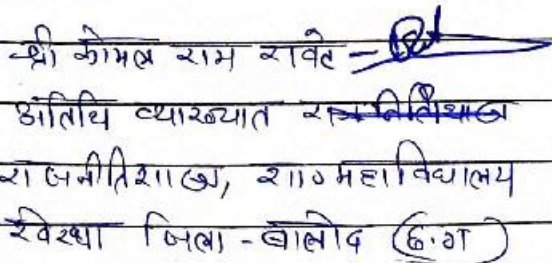 श्री कोमल राम रावटे -
अतिथि व्याख्यात
राजनीतिशास्त्र, शा० महाविद्यालय
जिला - बालोद (छ.ग)